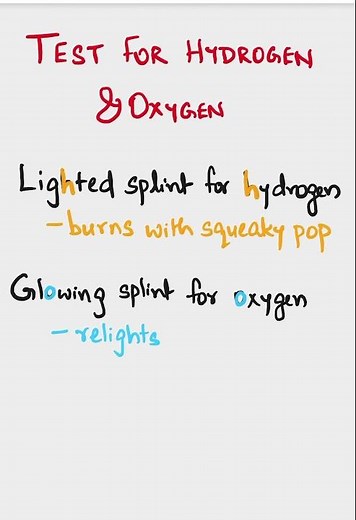 TEST FOR HYDROGEN
& OXYGEN
Lighted splint for hydrogen
- burns with squeaky pop
Glowing splint for oxygen
- relights